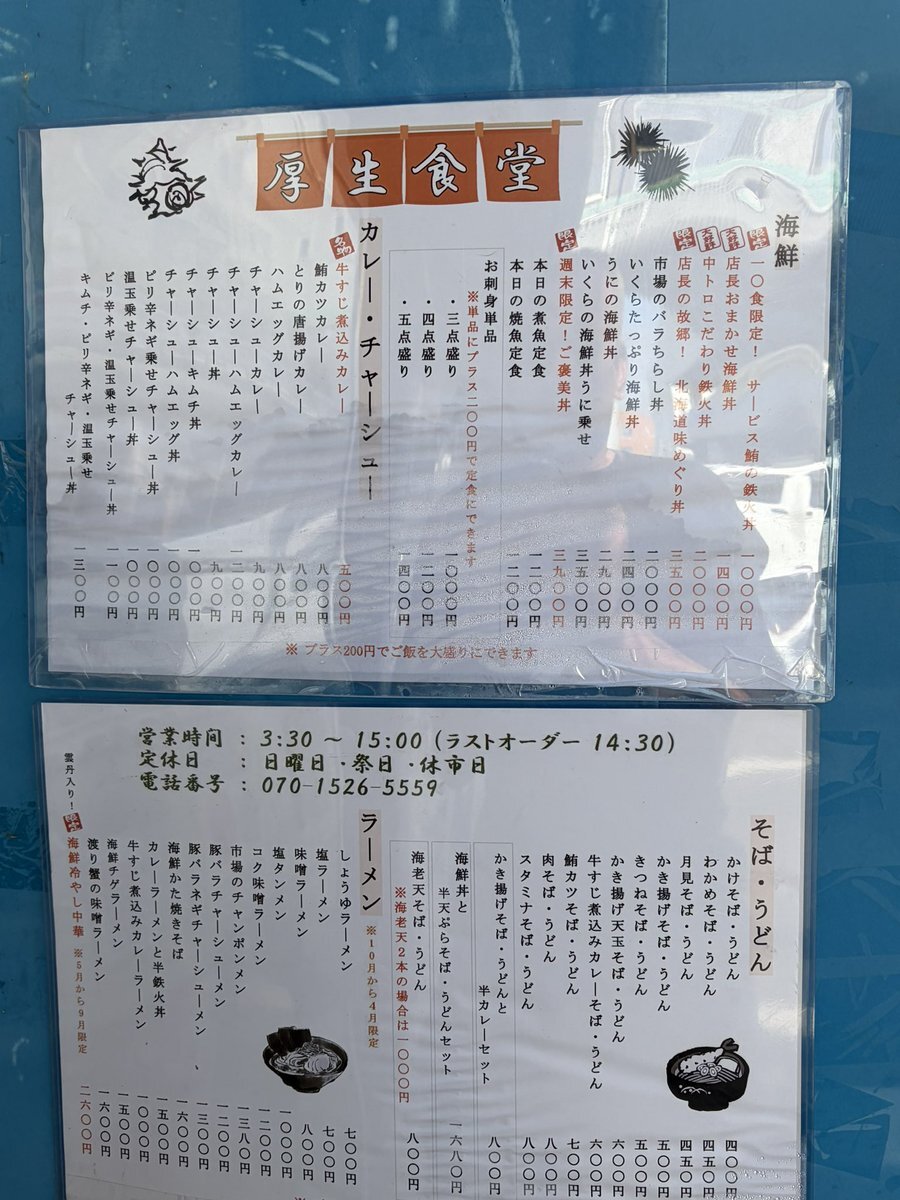 厚生食堂
海鮮
限定 一〇食限定！ サービス鮪の鉄火丼 一〇〇〇円
大好評 店長おまかせ海鮮丼 一四〇〇円
大好評 中トロこだわり鉄火丼 二〇〇〇円
限定 店長の故郷！ 北海道味めぐり丼 三五〇〇円
市場のバラちらし丼 二〇〇〇円
いくらたっぷり海鮮丼 二四〇〇円
うにの海鮮丼 二九〇〇円
いくらの海鮮丼うに乗せ 三五〇〇円
限定 週末限定！ご褒美丼 三九〇〇円
本日の煮魚定食 一二〇〇円
本日の焼魚定食 一二〇〇円
お刺身単品
※単品にプラス二〇〇円で定食にできます
・三点盛り 一〇〇〇円
・四点盛り 一二〇〇円
・五点盛り 一四〇〇円
カレー・チャーシュー
名物 牛すじ煮込みカレー 五〇〇円
鮪カツカレー 八〇〇円
とりの唐揚げカレー 八〇〇円
ハムエッグカレー 八〇〇円
チャーシューカレー 九〇〇円
チャーシューハムエッグカレー 一二〇〇円
チャーシュー丼 九〇〇円
チャーシューキムチ丼 一〇〇〇円
チャーシューハムエッグ丼 一〇〇〇円
ピリ辛ネギ乗せチャーシュー丼 一〇〇〇円
温玉乗せチャーシュー丼 一〇〇〇円
ピリ辛ネギ・温玉乗せチャーシュー丼 一一〇〇円
キムチ・ピリ辛ネギ・温玉乗せ
チャーシュー丼 一三〇〇円
※ プラス200円でご飯を大盛りにできます
営業時間 : 3:30 ～ 15:00 (ラストオーダー 14:30)
定休日 : 日曜日・祭日・休市日
電話番号 : 070-1526-5559
そば・うどん
かけそば・うどん 四〇〇円
わかめそば・うどん 四五〇円
月見そば・うどん 四五〇円
かき揚げそば・うどん 五〇〇円
きつねそば・うどん 五〇〇円
かき揚げ天玉そば・うどん 六〇〇円
牛すじ煮込みカレーそば・うどん 六〇〇円
鮪カツそば・うどん 七〇〇円
肉そば・うどん 八〇〇円
スタミナそば・うどん 八〇〇円
かき揚げそば・うどんと
半カレーセット 八〇〇円
海鮮丼と
半天ぷらそば・うどんセット 一六八〇円
海老天そば・うどん 八〇〇円
※海老天２本の場合は一〇〇〇円
ラーメン
※10月から4月限定
しょうゆラーメン 七〇〇円
塩ラーメン 七〇〇円
味噌ラーメン 八〇〇円
塩タンメン 一〇〇〇円
コク味噌ラーメン 一二〇〇円
市場のチャンポンメン 一三八〇円
豚バラチャーシューメン 一二〇〇円
豚バラネギチャーシューメン 一三〇〇円
海鮮かた焼きそば 一六〇〇円
カレーラーメンと半鉄火丼 一五〇〇円
牛すじ煮込みカレーラーメン 一〇〇〇円
海鮮チゲラーメン 一五〇〇円
渡り蟹の味噌ラーメン 一六〇〇円
雲丹入り！ 限定 海鮮冷やし中華 ※5月から9月限定 二六〇〇円